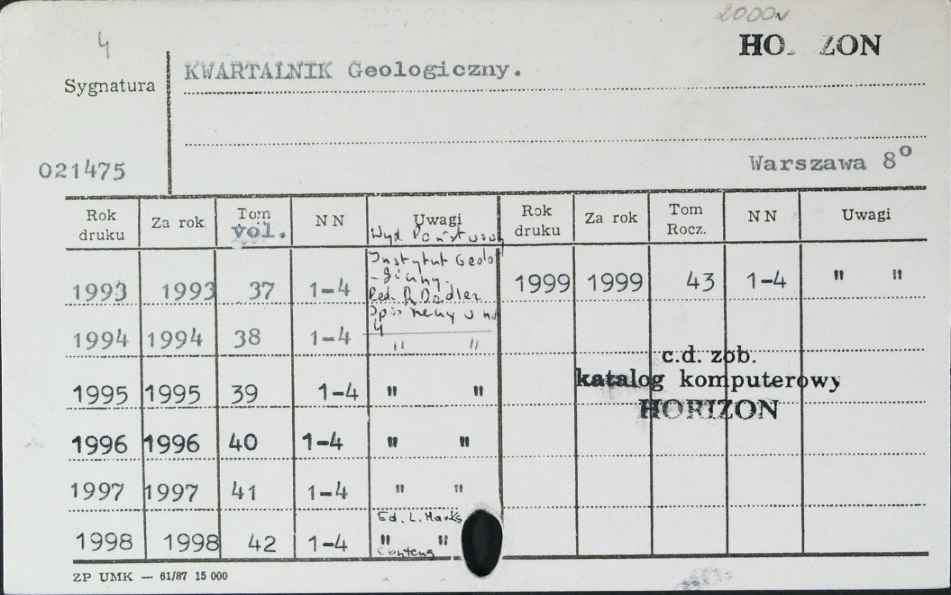 2000
4
HO ZON
KWARTALNIK Geologiczny.
Sygnatura
021475
Warszawa 8°
Rok druku Za rok Tom vol. N N Uwagi Rok druku Za rok Tom Rocz. N N Uwagi
Wyd.
Instytut Geolo
-giczny
Red.
1993 1993 37 1-4
1999 1999 43 1-4 " "
4
1994 1994 38 1-4 " "
c.d. zob.
katalog komputerowy
HORIZON
1995 1995 39 1-4 " "
1996 1996 40 1-4 " "
1997 1997 41 1-4 " "
Ed. L. Marks
1998 1998 42 1-4 " "
ZP UMK — 61/87 15 000